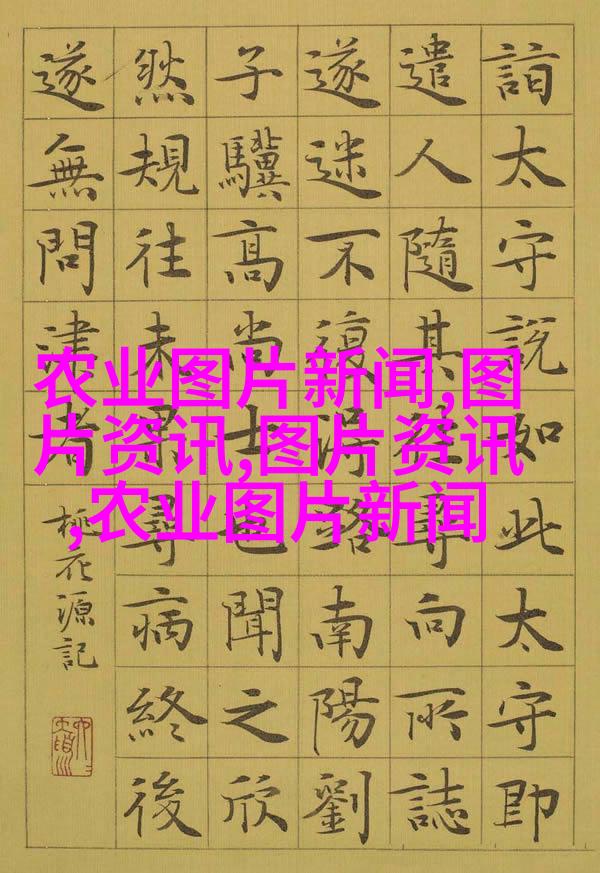 詣太守説如此太守即
遣人隨其往尋向所誌
遂迷不復得路南陽劉
子驥髙尚士也聞之欣
然規往未果尋病終後
遂無問津者
桃花源記
农业图片新闻,图
片资讯,图片资讯
,农业图片新闻